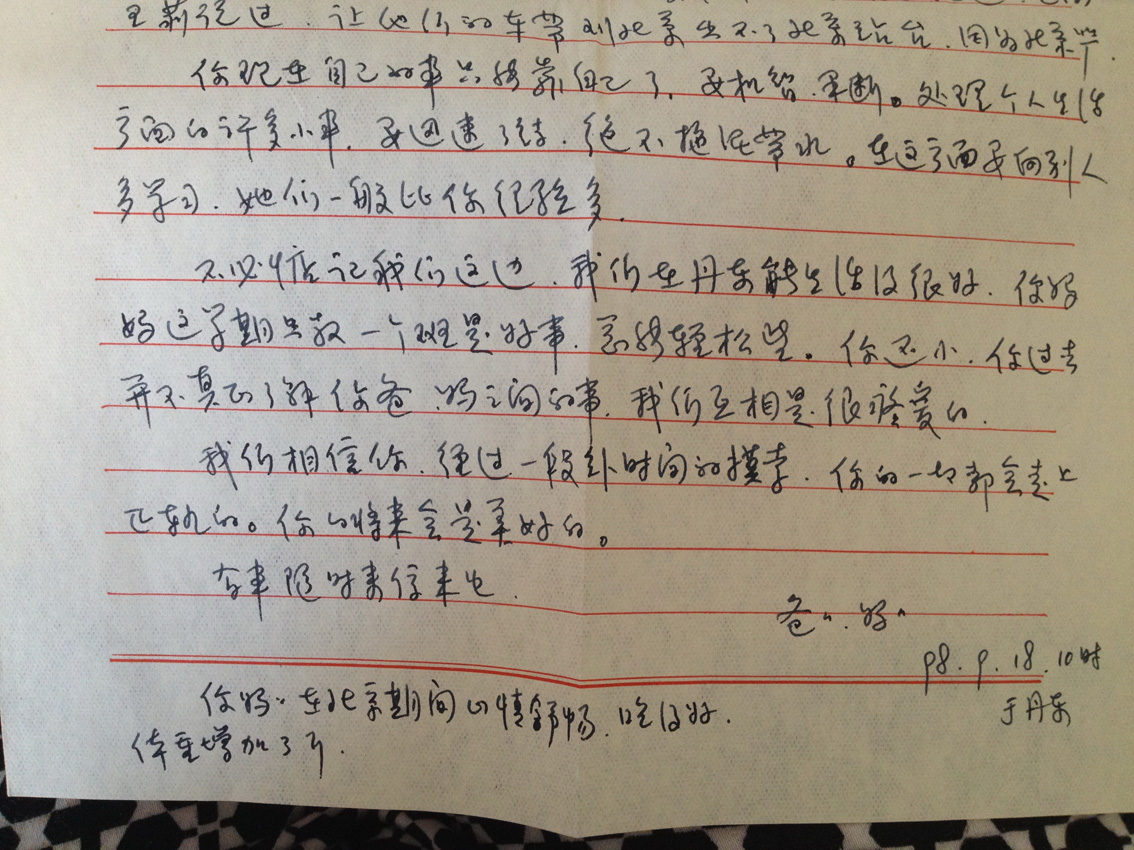 莉经过.让他们的车带到北京出不了北京站台.因为北京
你现在自己的事只好靠自己了.要机智.果断。处理个人生活
方面的许多小事.要迅速了结.绝不拖泥带水。在这方面要向别人
多学习.她们一般比你经验多.
不必惦记我们这边.我们在丹东能生活得很好.你妈
妈这学期只教一个班是好事.总算轻松些。你还小.你过去
并不真正了解你爸.妈之间的事.我们互相是很疼爱的.
我们相信你.经过一段时间的摸索.你的一切都会走上
正轨的。你的将来会是美好的。
有事随时来信来电.
爸〃.妈〃
98.9.18.10时
于丹东
你妈〃在北京期间心情舒畅.吃得好.
体重增加3斤.